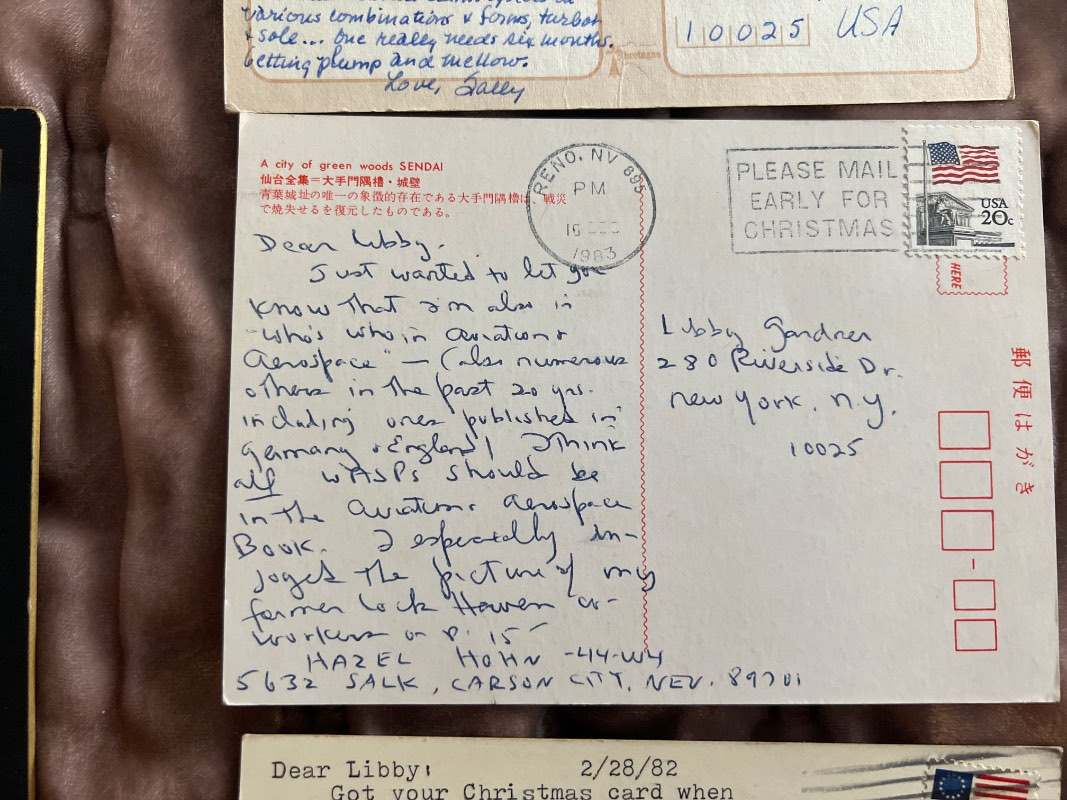 various combinations & forms, turbot
& sole... one really needs six months.
Getting plump and mellow.
Love, Sally
10025 USA
A city of green woods SENDAI
仙台全集=大手門隅櫓・城壁
青葉城址の唯一の象徴的存在である大手門隅櫓は、戦災
で焼失せるを復元したものである。
RENO, NV 895
PM
16 DEC
1983
PLEASE MAIL
EARLY FOR
CHRISTMAS
USA
20c
HERE
Dear Libby.
Just wanted to let you
know that I'm also in
"Who's who in Aviation &
Aerospace" — (also numerous
others in the past 20 yrs.
including ones published in
Germany & England) I think
all WASPs should be
in the Aviation & Aerospace
Book. I especially en-
joyed the picture of my
former Lock Haven co-
workers on P. 15
HAZEL HOHN -44-W4
5632 SALK, CARSON CITY, NEV. 89701
Libby Gardner
280 Riverside Dr.
New York, N.Y.
10025
郵便はがき
Dear Libby: 2/28/82
Got your Christmas card when